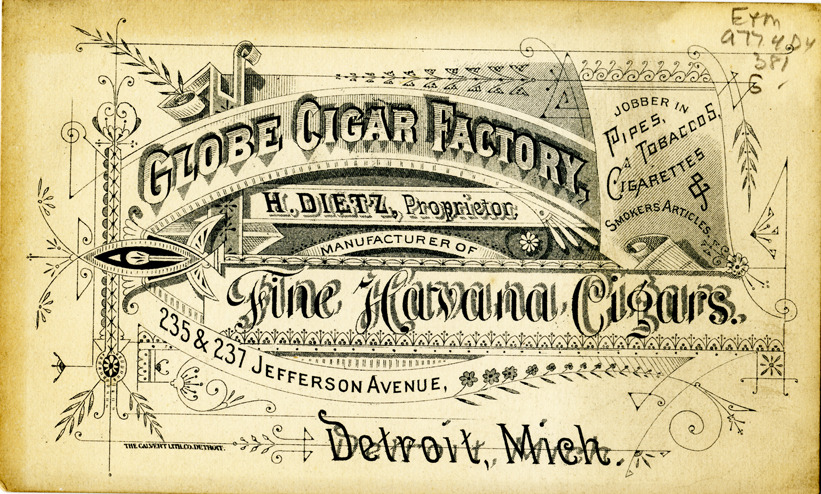 GLOBE CIGAR FACTORY,
H. DIETZ, Proprietor.
MANUFACTURER OF
Fine Havana Cigars.
235 & 237 JEFFERSON AVENUE,
Detroit, Mich.
JOBBER IN
PIPES,
TOBACCOS,
CIGARETTES
&
SMOKERS ARTICLES.
THE CALVERT LITH. CO. DETROIT.
381